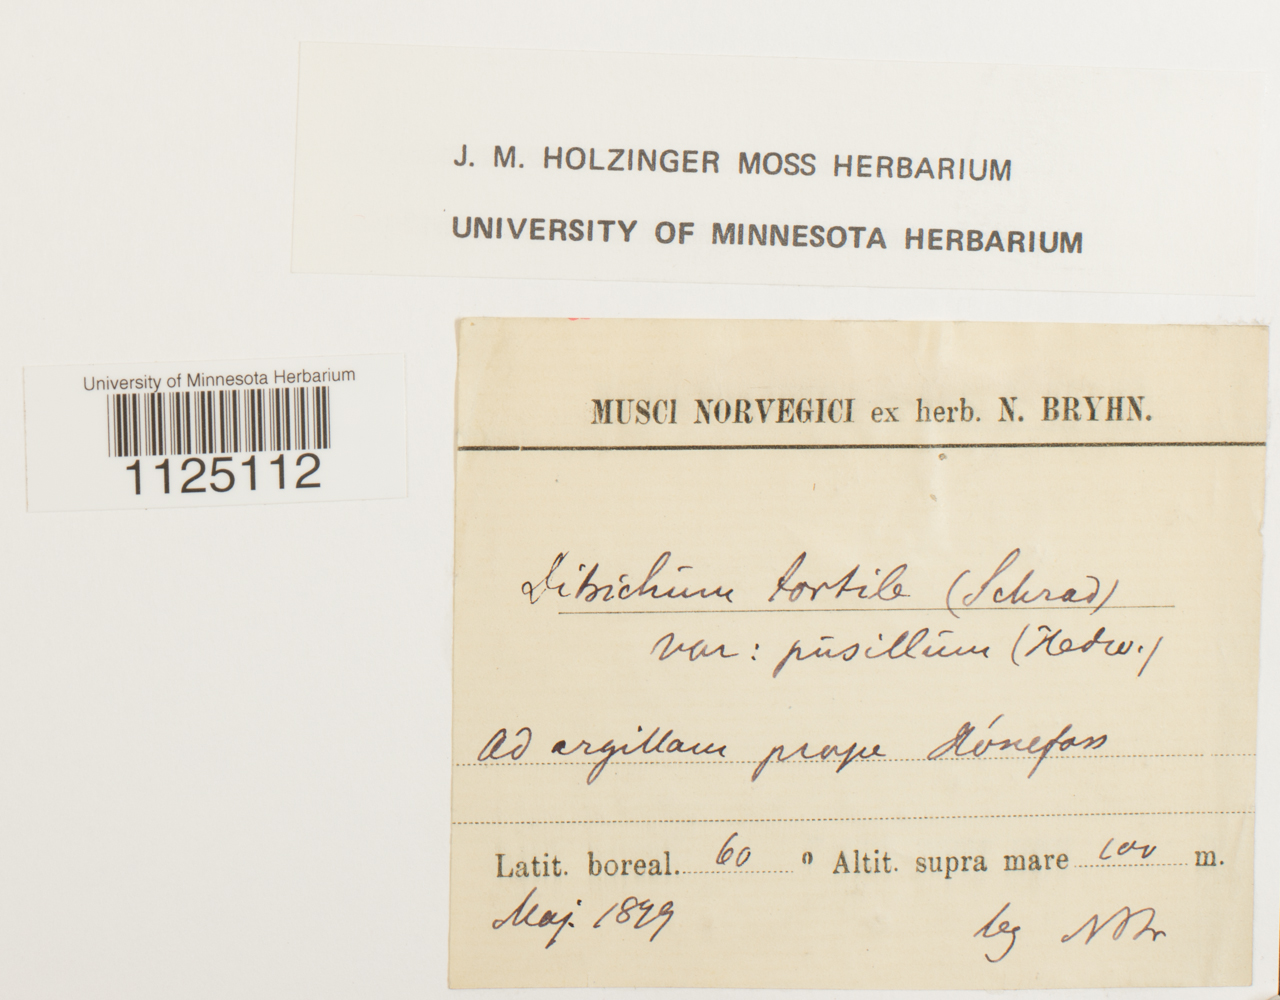 J. M. HOLZINGER MOSS HERBARIUM
UNIVERSITY OF MINNESOTA HERBARIUM
University of Minnesota Herbarium
1125112
MUSCI NORVEGICI ex herb. N. BRYHN.
Ditrichum tortile (Schrad)
var: pusillum (Hedw.)
Ad argillam prope Hónefoss
Latit. boreal. 60 ° Altit. supra mare 100 m.
Maj. 1899
leg NBr